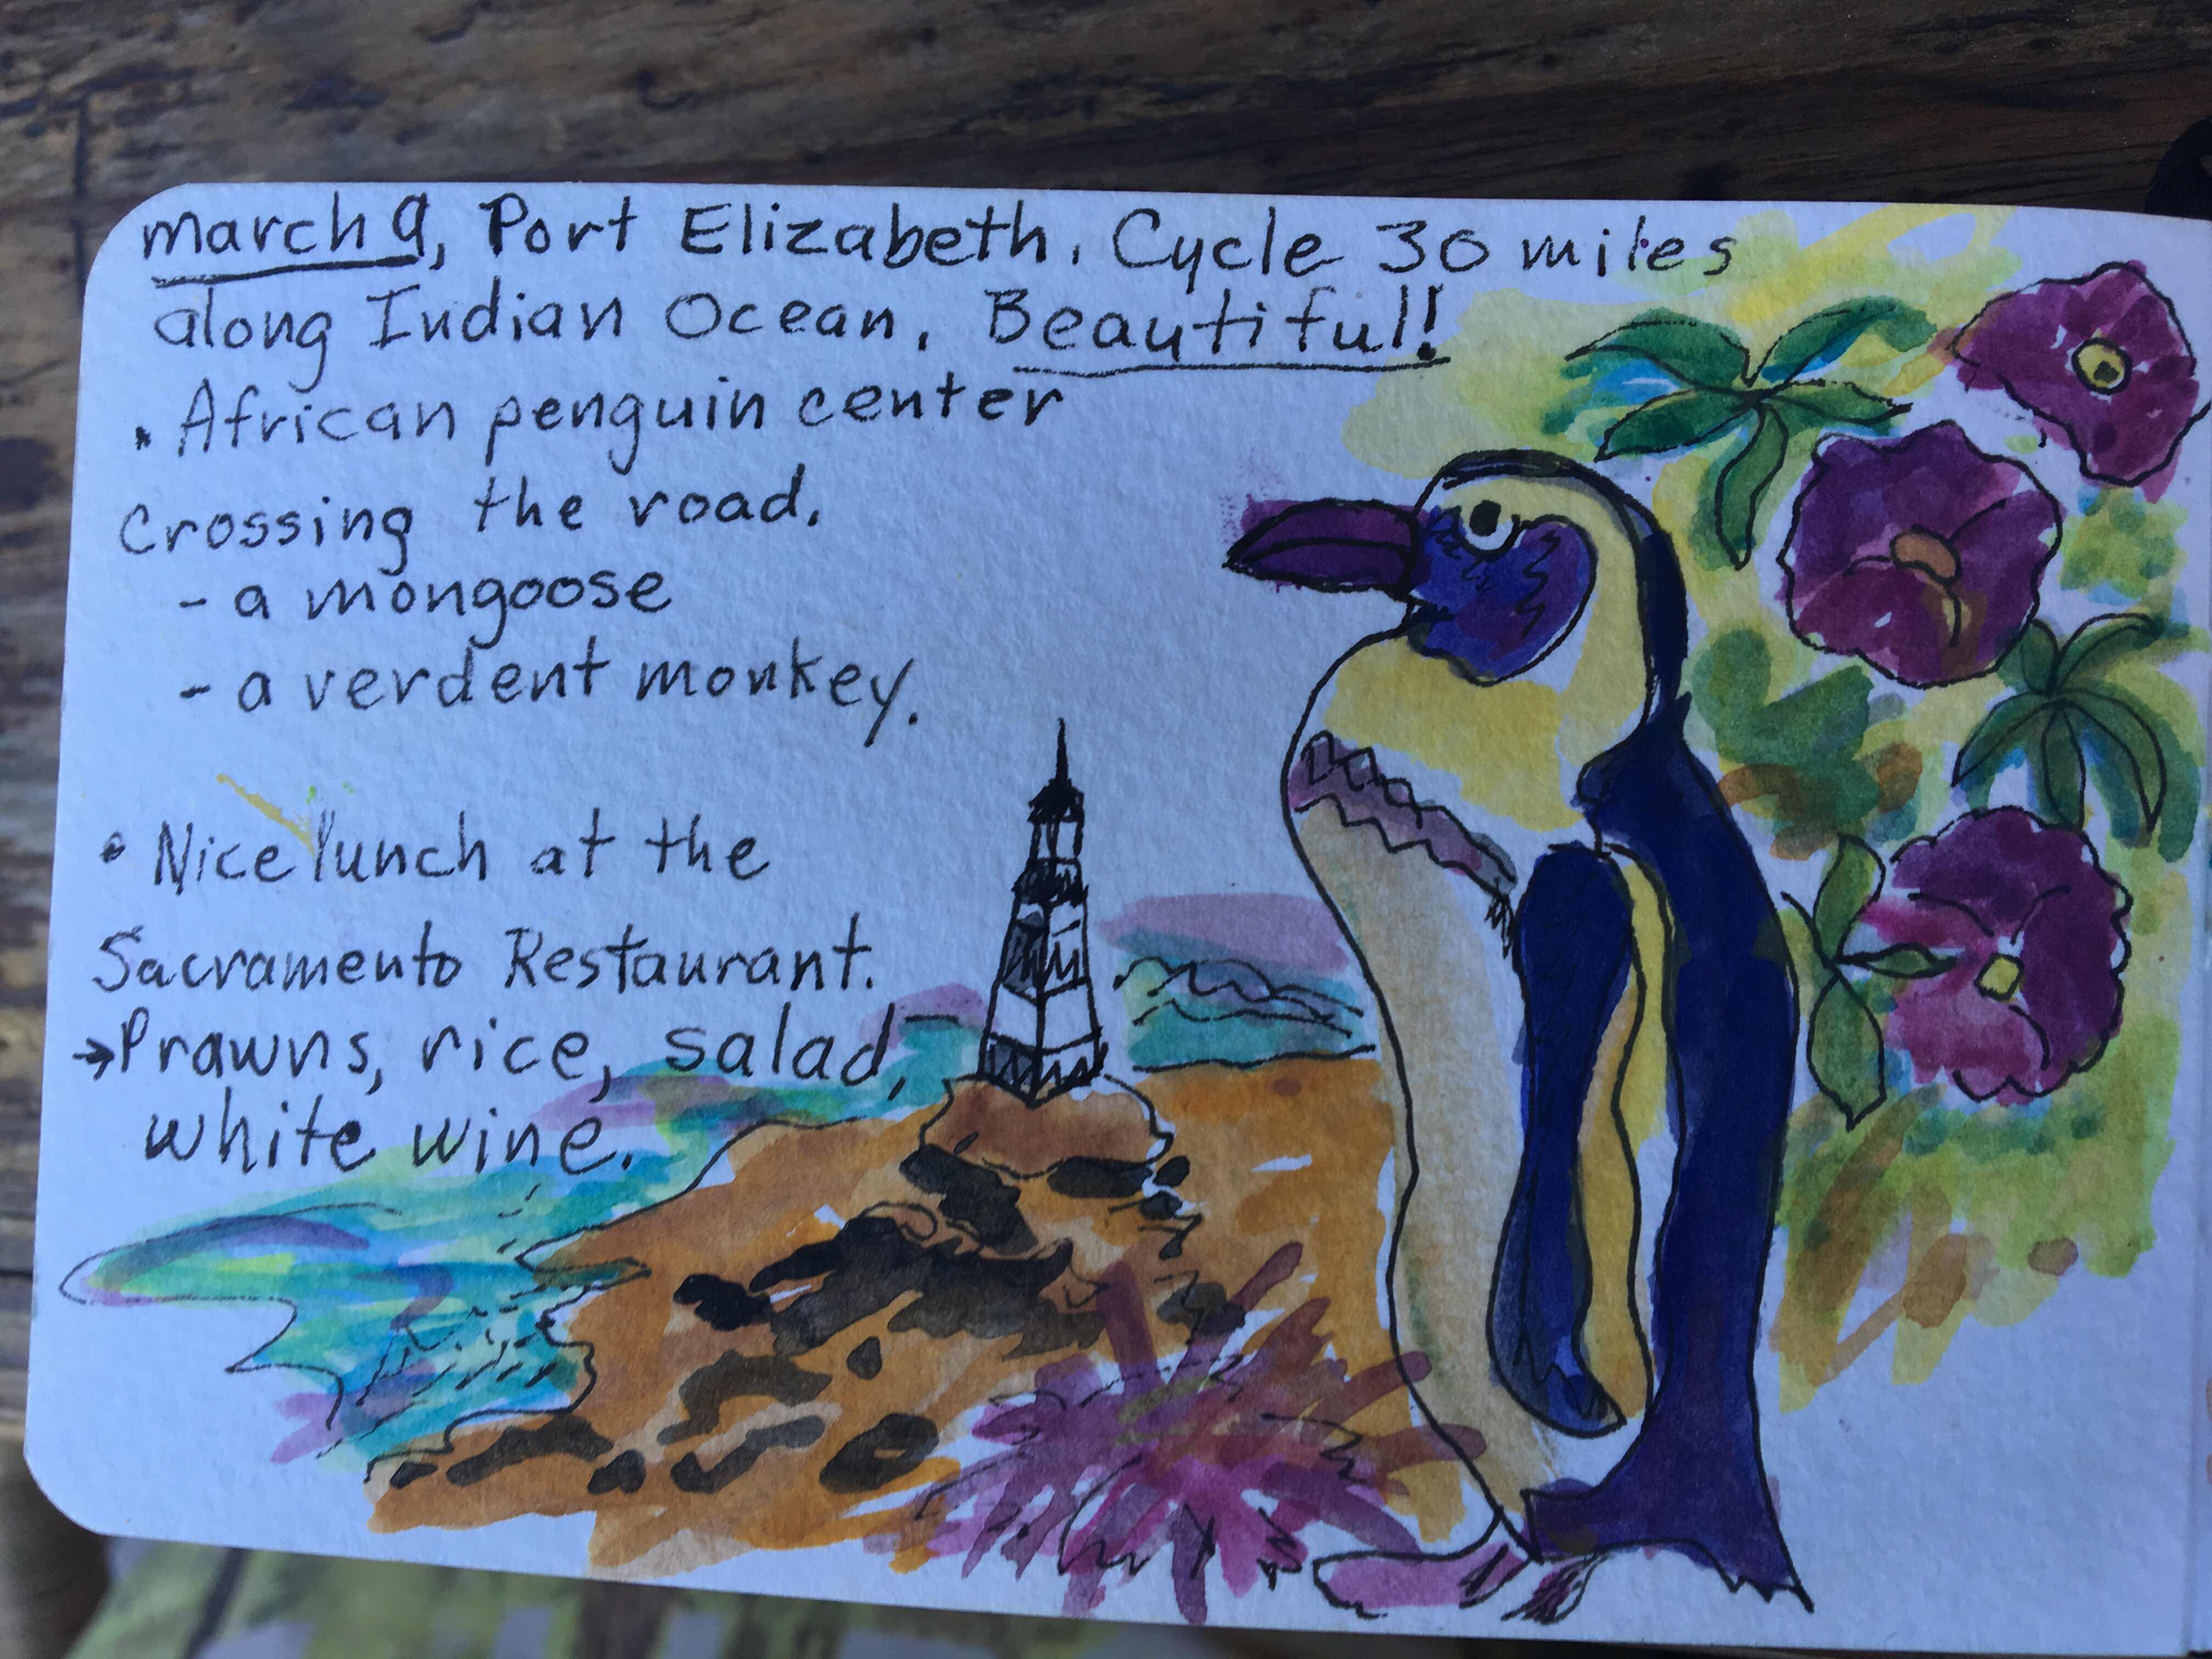 march 9, Port Elizabeth. Cycle 30 miles
along Indian Ocean. Beautiful!
• African penguin center
Crossing the road.
- a mongoose
- a verdent monkey.
• Nice lunch at the
Sacramento Restaurant.
→ Prawns, rice, salad,
white wine.